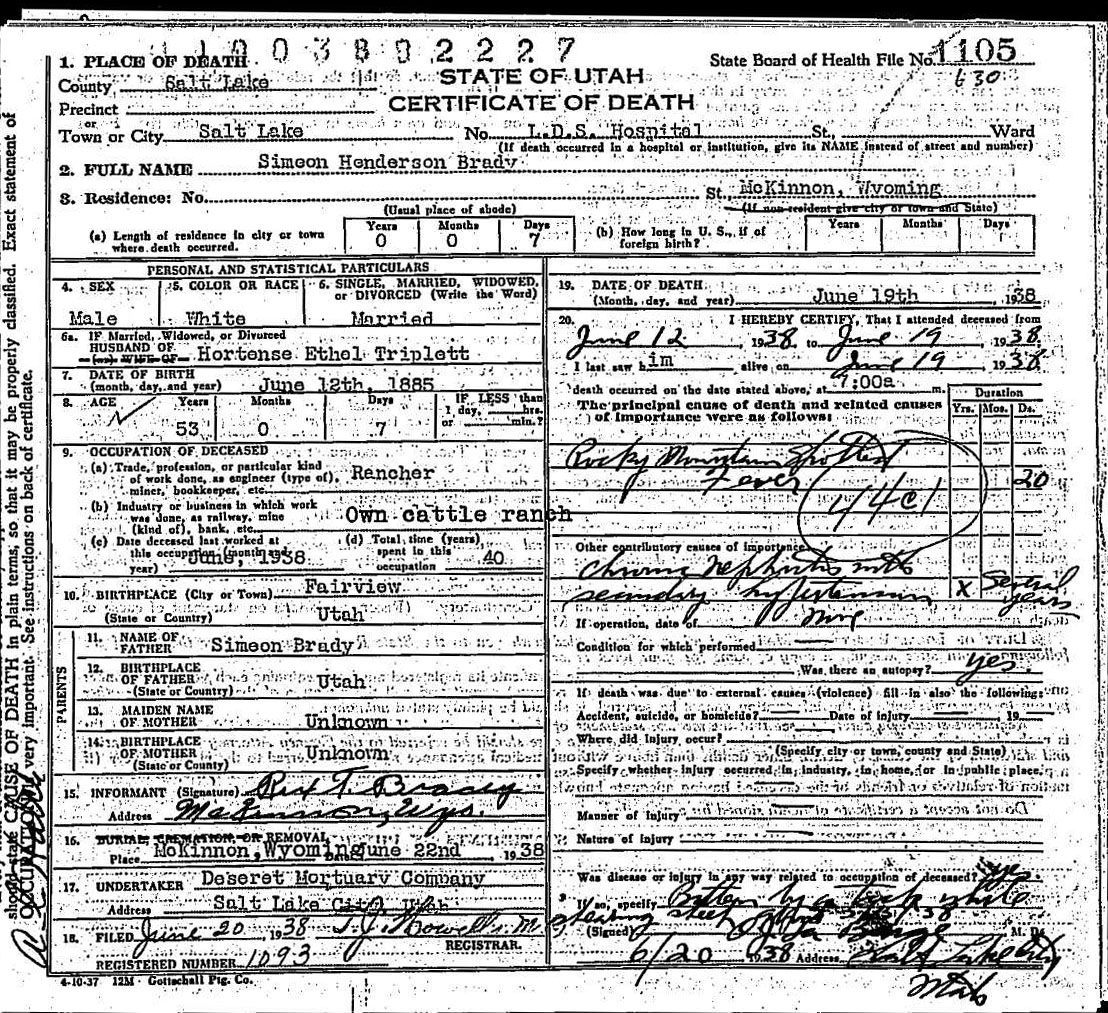 1. PLACE OF DEATH
State Board of Health File No. 1105
630
County Salt Lake
STATE OF UTAH
Precinct
CERTIFICATE OF DEATH
or
Town or City Salt Lake No. L.D.S. Hospital St., Ward
(If death occurred in a hospital or institution, give its NAME instead of street and number)
2. FULL NAME Simeon Henderson Brady
3. Residence: No. St. McKinnon, Wyoming
(Usual place of abode) (If non-resident give city or town and State)
(a) Length of residence in city or town where death occurred. Years 0 Months 0 Days 7
(b) How long in U. S., if of foreign birth? Years Months Days
PERSONAL AND STATISTICAL PARTICULARS
4. SEX 5. COLOR OR RACE 6. SINGLE, MARRIED, WIDOWED,
or DIVORCED (Write the Word)
Male White Married
6a. IF Married, Widowed, or Divorced
HUSBAND OF
(or) WIFE OF Hortense Ethel Triplett
7. DATE OF BIRTH
(month, day, and year) June 12th, 1885
8. AGE Years Months Days IF LESS than
1 day, hrs.
53 0 7 or min.?
9. OCCUPATION OF DECEASED
(a) Trade, profession, or particular kind
of work done, as engineer (type of), Rancher
miner, bookkeeper, etc.
(b) Industry or business in which work
was done, as railway, mine Own cattle ranch
(kind of), bank, etc.
(c) Date deceased last worked at (d) Total time (years)
this occupation (month and spent in this
year) June, 1938 occupation 40
10. BIRTHPLACE (City or Town) Fairview
(State or Country) Utah
PARENTS
11. NAME OF
FATHER Simeon Brady
12. BIRTHPLACE
OF FATHER Utah
(State or Country)
13. MAIDEN NAME
OF MOTHER Unknown
14. BIRTHPLACE
OF MOTHER Unknown
(State or County)
15. INFORMANT (Signature) Rex T. Brady
Address McKinnon, Wyo.
16. BURIAL, CREMATION, OR REMOVAL
Place McKinnon, Wyoming Date June 22nd 1938
17. UNDERTAKER Deseret Mortuary Company
Address Salt Lake City, Utah
18. FILED June 20, 1938 T. J. Howells M.
REGISTRAR.
REGISTERED NUMBER 1093
4-10-37 12M - Gottschall Ptg. Co.
19. DATE OF DEATH
(Month, day, and year) June 19th, 1938
20. I HEREBY CERTIFY, That I attended deceased from
June 12 1938, to June 19 1938.
I last saw him alive on June 19 1938
death occurred on the date stated above, at 7:00a m.
The principal cause of death and related causes
of importance were as follows:
Duration
Yrs. Mos. Ds.
Rocky Mountain Spotted
Fever 20
44c1
Other contributory causes of importance
chronic nephritis with
secondary hypertension X Several years
If operation, date of None
Condition for which performed
Was there an autopsy? yes
If death was due to external causes (violence) fill in also the following:
Accident, suicide, or homicide? Date of injury 19
Where did injury occur?
(Specify city or town, county and State)
Specify whether injury occurred in industry, in home, or in public place.
Manner of injury
Nature of injury
Was disease or injury in any way related to occupation of deceased? yes
If so, specify Bitten by a tick while
shearing sheep
(Signed) M. D.
6/20 1938 Address Salt Lake City
Utah
should state CAUSE OF DEATH in plain terms, so that it may be properly classified. Exact statement of
OCCUPATION very important. See instructions on back of certificate.